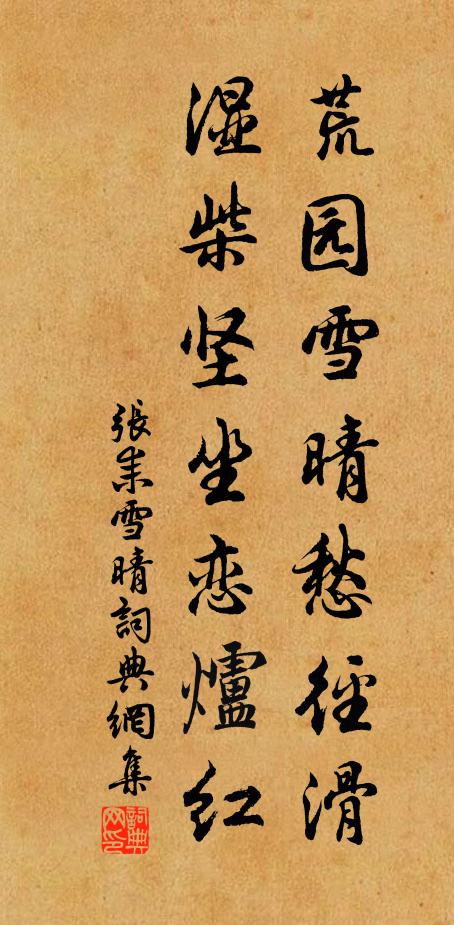 荒园雪晴愁径滑
湿柴坚坐恋爐红
張耒雪晴詞典網集
詞典网印